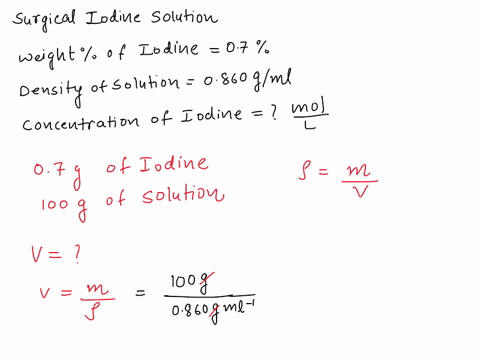 Surgical Iodine Solution
Weight % of Iodine = 0.7 %
Density of Solution = 0.860 g/ml
Concentration of Iodine = ? mol/L
0.7 g of Iodine
100 g of Solution
ρ = m/V
V = ?
V = m/ρ = 100 g / 0.860 g ml⁻¹